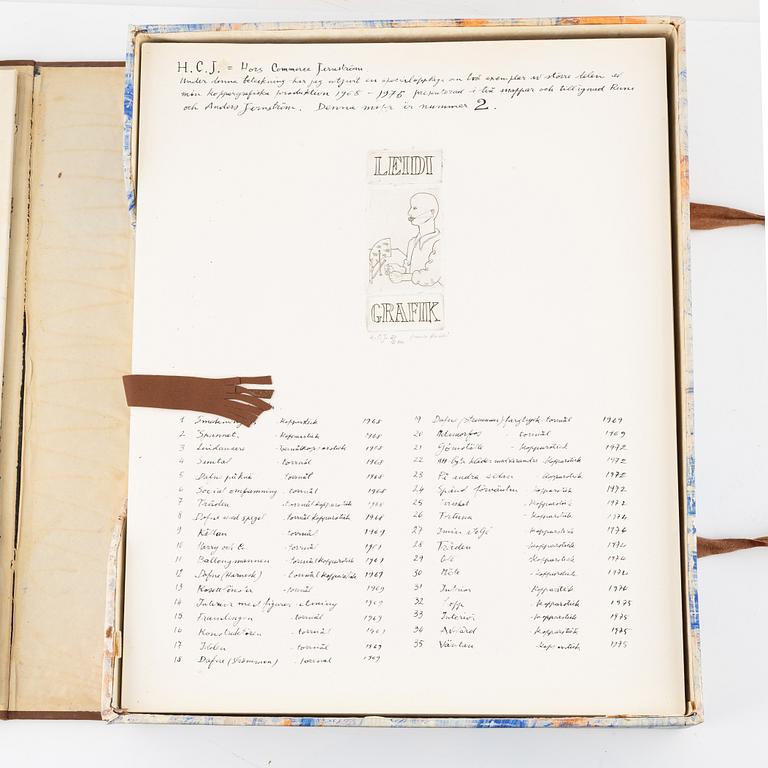 H.C.J. = Hors Commerce Jernström
Under denna beteckning har jag utgivit en specialupplaga om två exemplar av större delen av
min koppargrafiska produktion 1968 - 1975 presenterad i två mappar och tillägnad Runi
och Anders Jernström. Denna mapp är nummer 2.
LEIDI
GRAFIK
H.C.J.
1 Kopparstick 1968
2 Spunnet. - Kopparstick 1968
3 Lindansare 1968
4 Samtal - torrnål 1968
5 Dafne - torrnål 1968
6 Social omfamning - torrnål 1968
7 Tråden - torrnål Kopparstick 1968
8 Dafne med spegel - torrnål Kopparstick 1968
9 Källan - torrnål 1969
10 Harry och Co - torrnål 1969
11 Ballongmannen - torrnål Kopparstick 1969
12 Dafne (Harnesk) - torrnål Kopparstick 1969
13 - torrnål 1969
14 Interiör med figurer, etsning 1969
15 Främlingen - torrnål 1969
16 Konstruktören - torrnål 1969
17 Ilden - torrnål 1969
18 Dafne (Strömmen) - torrnål 1969
19 Dafne (Strömmen) färgtryck - torrnål 1969
20 - torrnål 1969
21 Gömställe - Kopparstick 1972
22 Att byta kläder med varandra - Kopparstick 1972
23 På andra sidan - Kopparstick 1972
24 Spänd förväntan - Kopparstick 1972
25 - Kopparstick 1972
26 - Kopparstick 1974
27 - Kopparstick 1974
28 Träden - Kopparstick 1974
29 - Kopparstick 1974
30 Möte - Kopparstick 1974
31 Interiör Kopparstick 1974
32 - Kopparstick 1975
33 Interiör - Kopparstick 1975
34 Avsked - Kopparstick 1975
35 Väntan - Kopparstick 1975